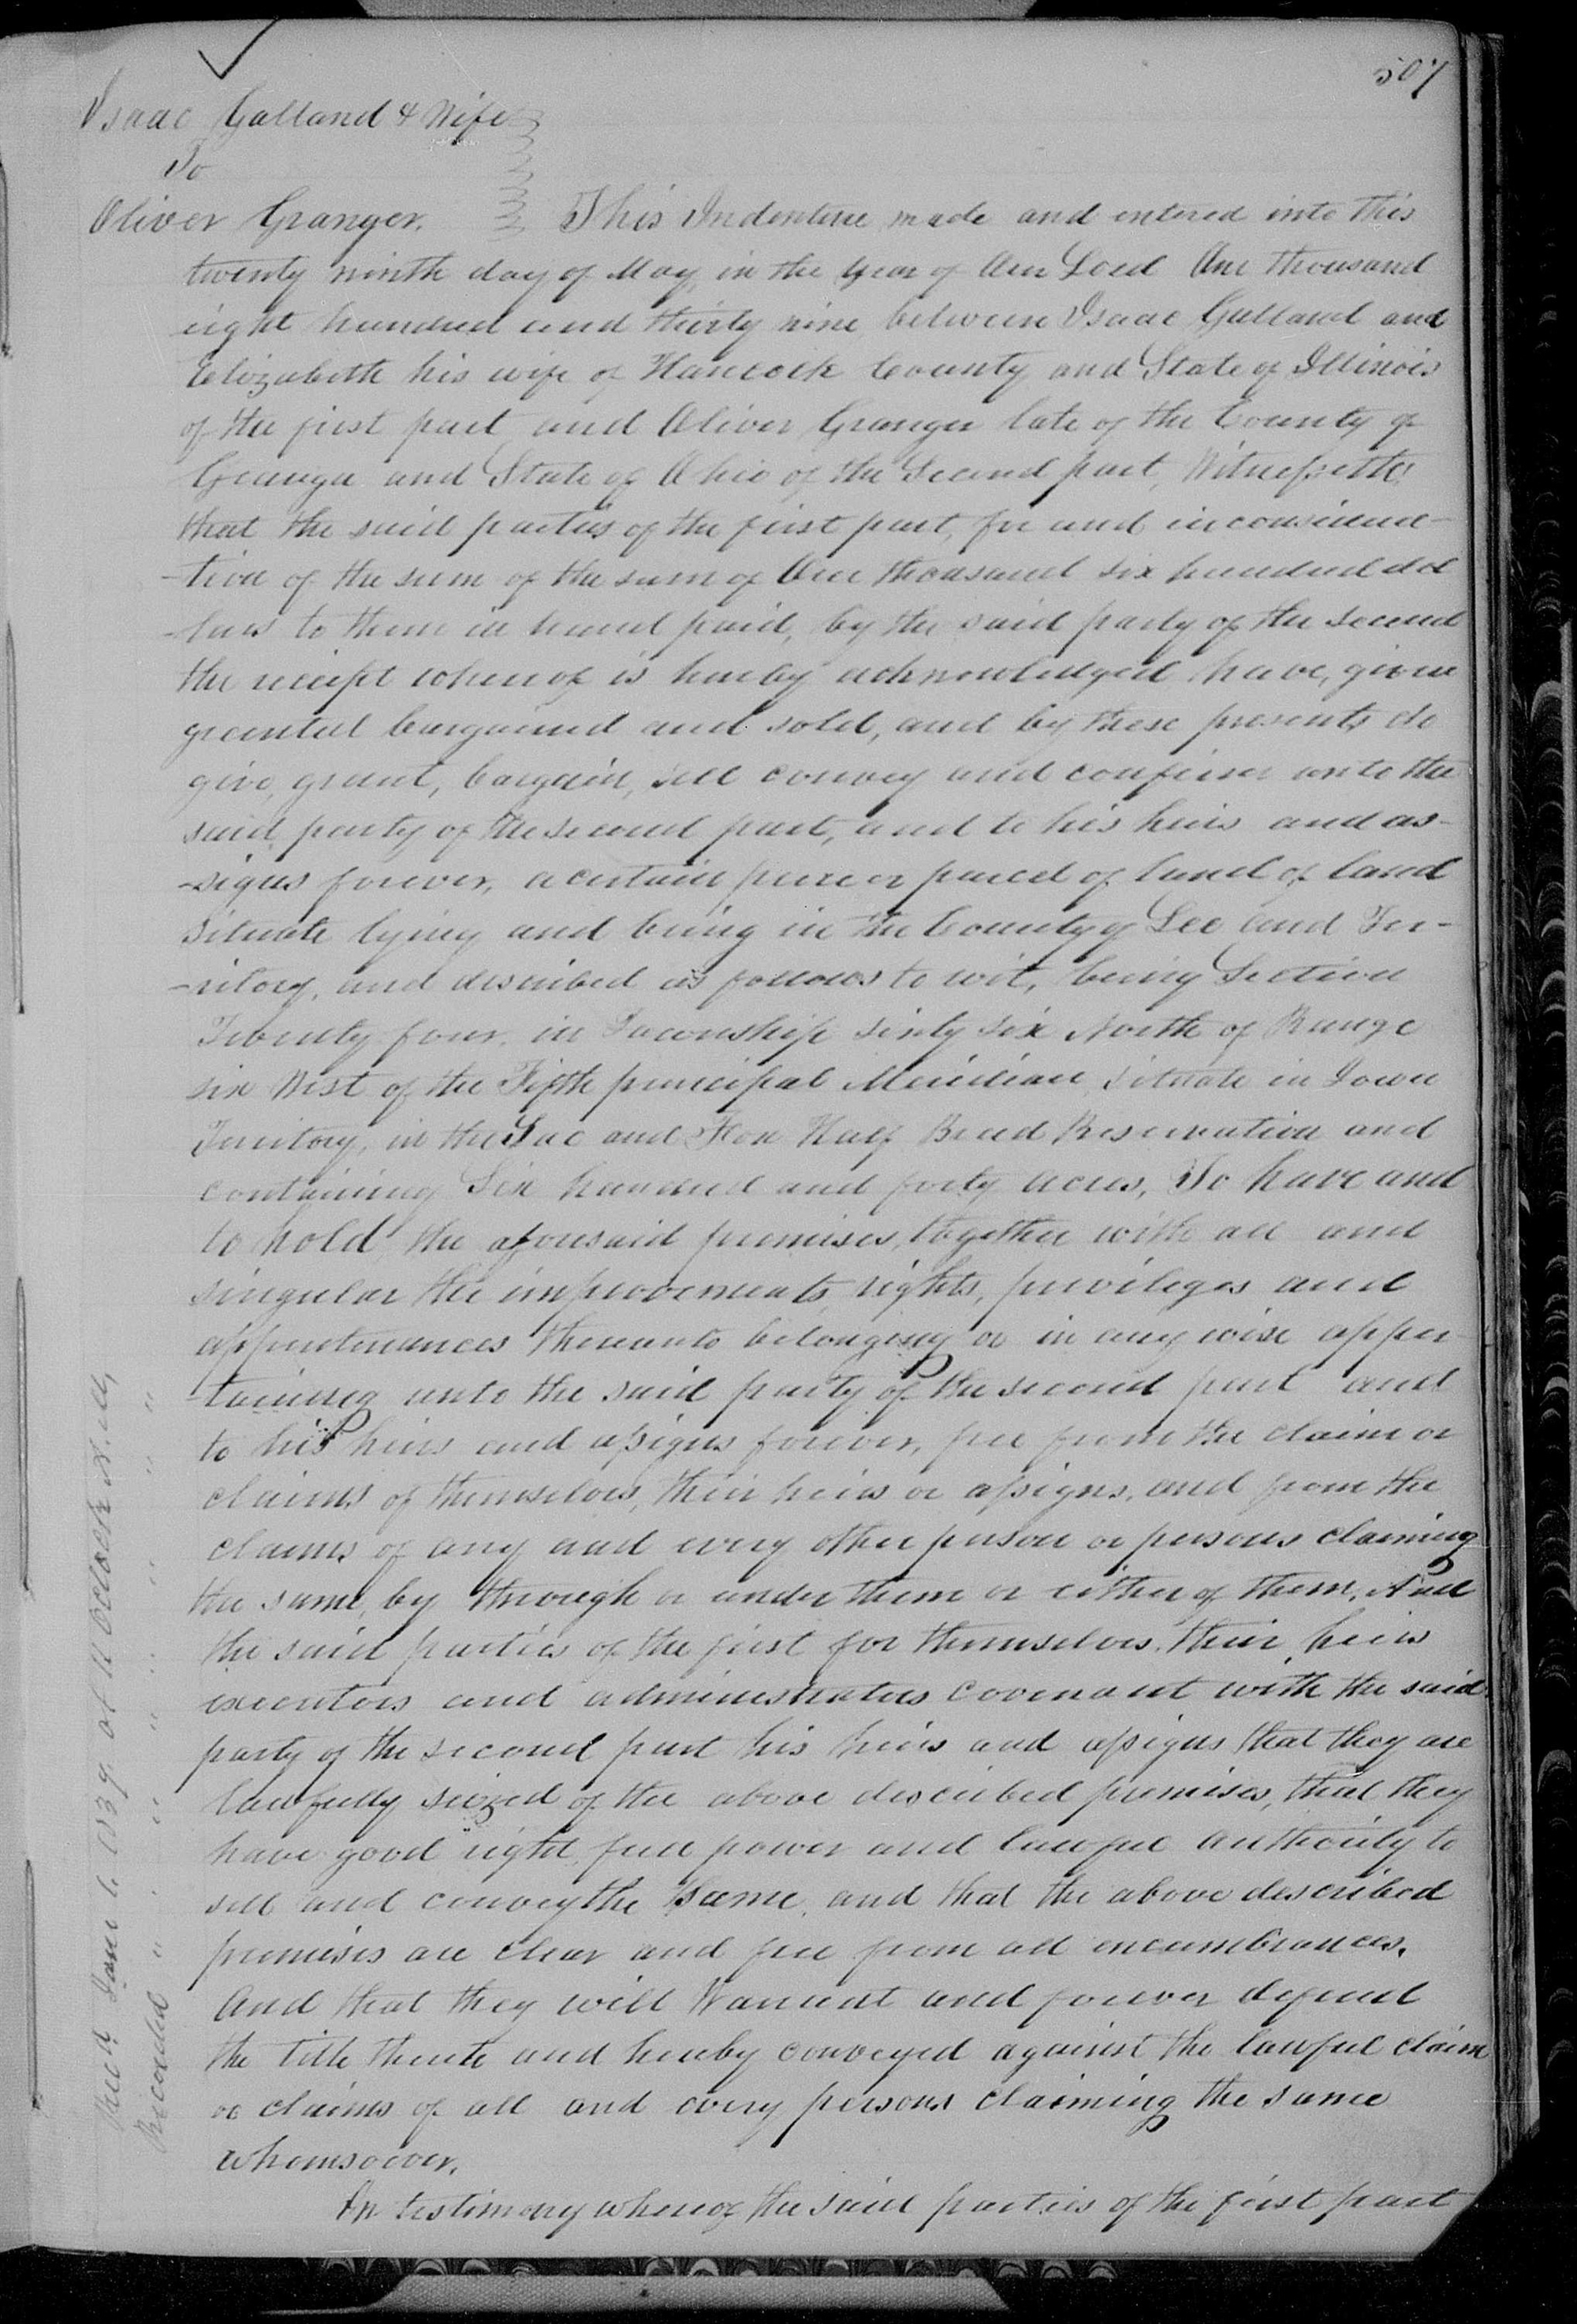 507
Isaac Galland & Wife
To
Oliver Granger. This Indenture made and entered into this
twenty ninth day of May, in the year of Our Lord One thousand
eight hundred and thirty nine between Isaac Galland and
Elizabeth his wife of Hancock County and State of Illinois
of the first part and Oliver Granger late of the County of
Geauga and State of Ohio of the Second part, Witnesseth,
that the said parties of the first part, for and in considera-
-tion of the sum of the sum of One thousand six hundred dol
-lars to them in hand paid, by the said party of the second
the receipt whereof is hereby acknowledged have, given
granted bargained and sold, and by these presents do
give, grant, bargain, sell convey and confirm unto the
said party of the second part, and to his heirs and as-
-signs forever, a certain piece or parcel of land of land
situate lying and being in the County of Lee and Ter-
-ritory, and described as follows to wit, being Section
Twenty four, in Township sixty six North of Range
six West of the Fifth principal Meridian, situate in Iowa
Territory, in the Sac and Fox Half Breed Reservation and
containing Six hundred and forty acres, To have and
to hold the aforesaid premises, together with all and
singular the improvements, rights, privileges and
appurtenances thereunto belonging or in any wise apper
-taining unto the said party of the second part and
to his heirs and assigns forever, free from the claim or
claims of themselves, their heirs or assigns, and from the
claims of any and every other person or persons claiming
the same, by through or under them or either of them, And
the said parties of the first for themselves, their heirs
executors and administrators covenant with the said
party of the second part his heirs and assigns that they are
lawfully seized of the above described premises, that they
have good right, full power and lawful authority to
sell and convey the same, and that the above described
premises are clear and free from all encumbrances.
And that they will Warrant and forever defend
the title thereto and hereby conveyed against the lawful claim
or claims of all and every persons claiming the same
whomsoever.
In testimony whereof the said parties of the first part
Filed June 6 1839. at 11 Oclock A.M,
Recorded " " " " " " "